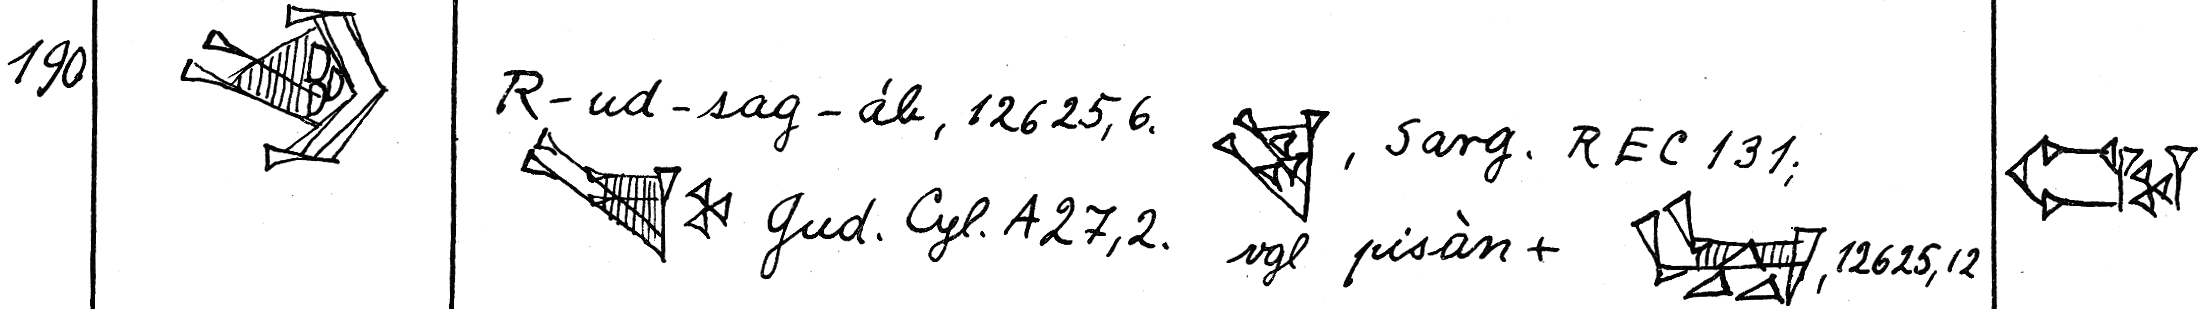 190
R-ud-sag-áb, 12625,6. , Sarg. REC 131;
Gud. Cyl. A 27,2. vgl pisàn+ , 12625,12